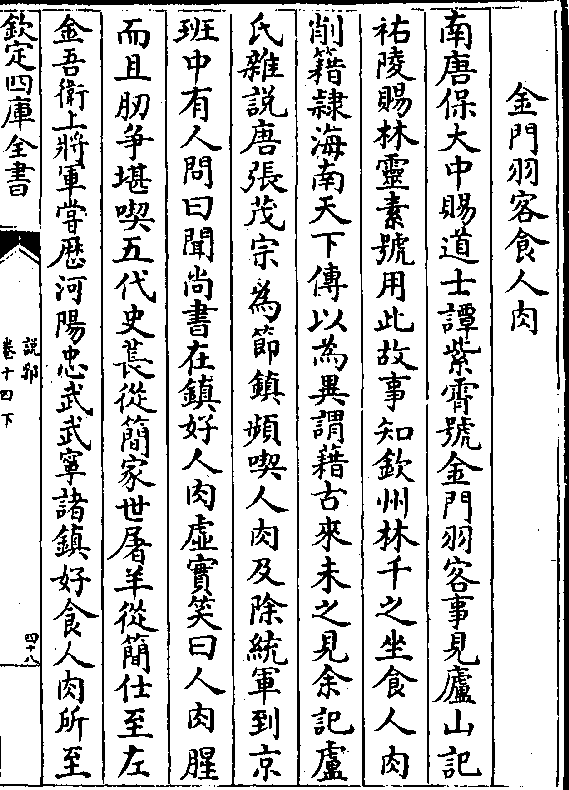 金門羽客食人肉
南唐保大中賜道士譚紫霄號金門羽客事見廬山記
祐陵賜林靈素號用此故事知欽州林千之坐食人肉
削籍隸海南天下傳以為異謂藉古來未之見余記盧
氏雜說唐張茂宗為節鎮頻喫人肉及除統軍到京
班中有人問曰聞尚書在鎮好人肉虛實笑曰人肉腥
而且肕爭堪喫五代史萇從簡家世屠羊從簡仕至左
金吾衛上將軍嘗歷河陽忠武武寧諸鎮好食人肉所至
欽定四庫全書
說郛
卷十四下
四十八